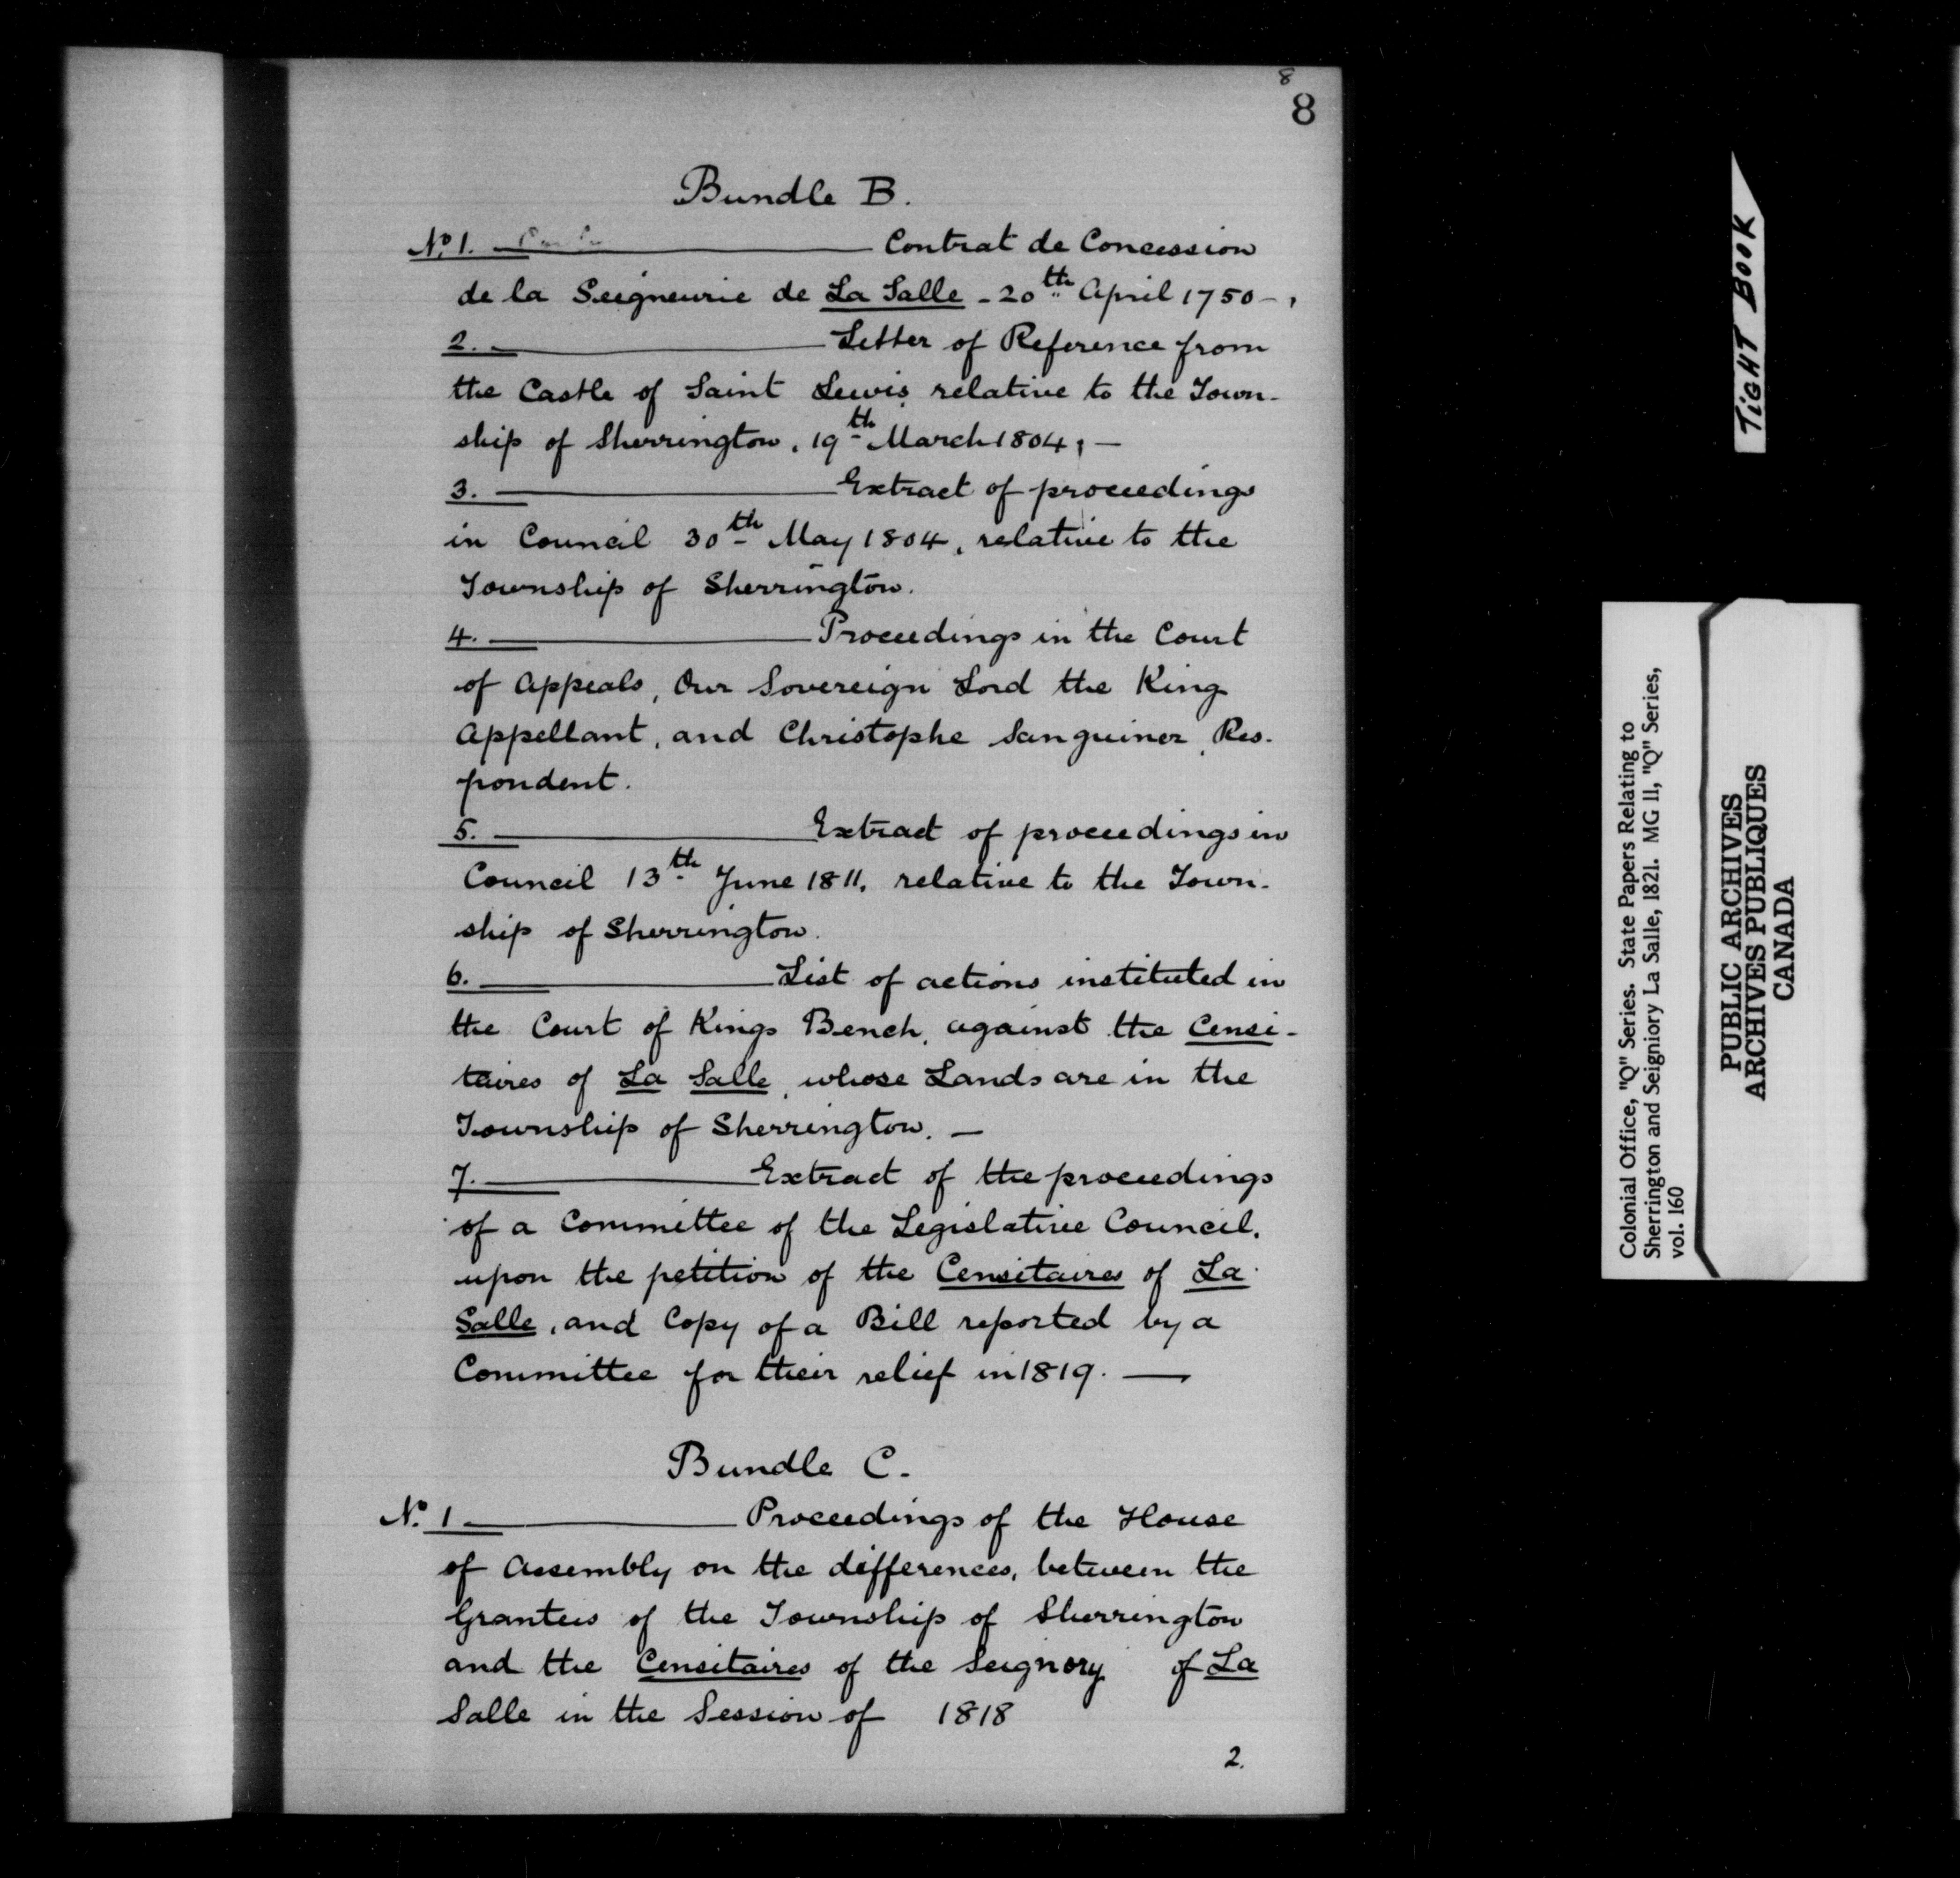 8
8
Bundle B.
No. 1. ——— Contrat de Concession
de la Seigneurie de La Salle - 20th April 1750 -,
2. ——— Letter of Reference from
the Castle of Saint Lewis relative to the Town-
ship of Sherrington, 19th March 1804, —
3. ——— Extract of proceedings
in Council 30th May 1804, relative to the
Township of Sherrington.
4. ——— Proceedings in the Court
of Appeals, Our Sovereign Lord the King
Appellant, and Christophe Sanguinez, Res-
pondent.
5. ——— Extract of proceedings in
Council 13th June 1811, relative to the Town-
ship of Sherrington.
6. ——— List of actions instituted in
the Court of Kings Bench, against the Censi-
taires of La Salle, whose Lands are in the
Township of Sherrington. —
7. ——— Extract of the proceedings
of a Committee of the Legislative Council,
upon the petition of the Censitaires of La
Salle, and Copy of a Bill reported by a
Committee for their relief in 1819. —
Bundle C.
No. 1 ——— Proceedings of the House
of Assembly on the differences, between the
Grantees of the Township of Sherrington
and the Censitaires of the Seignory of La
Salle in the Session of 1818
2.
TIGHT BOOK
Colonial Office, "Q" Series. State Papers Relating to
Sherrington and Seigniory La Salle, 1821. MG 11, "Q" Series,
vol. 160
PUBLIC ARCHIVES
ARCHIVES PUBLIQUES
CANADA